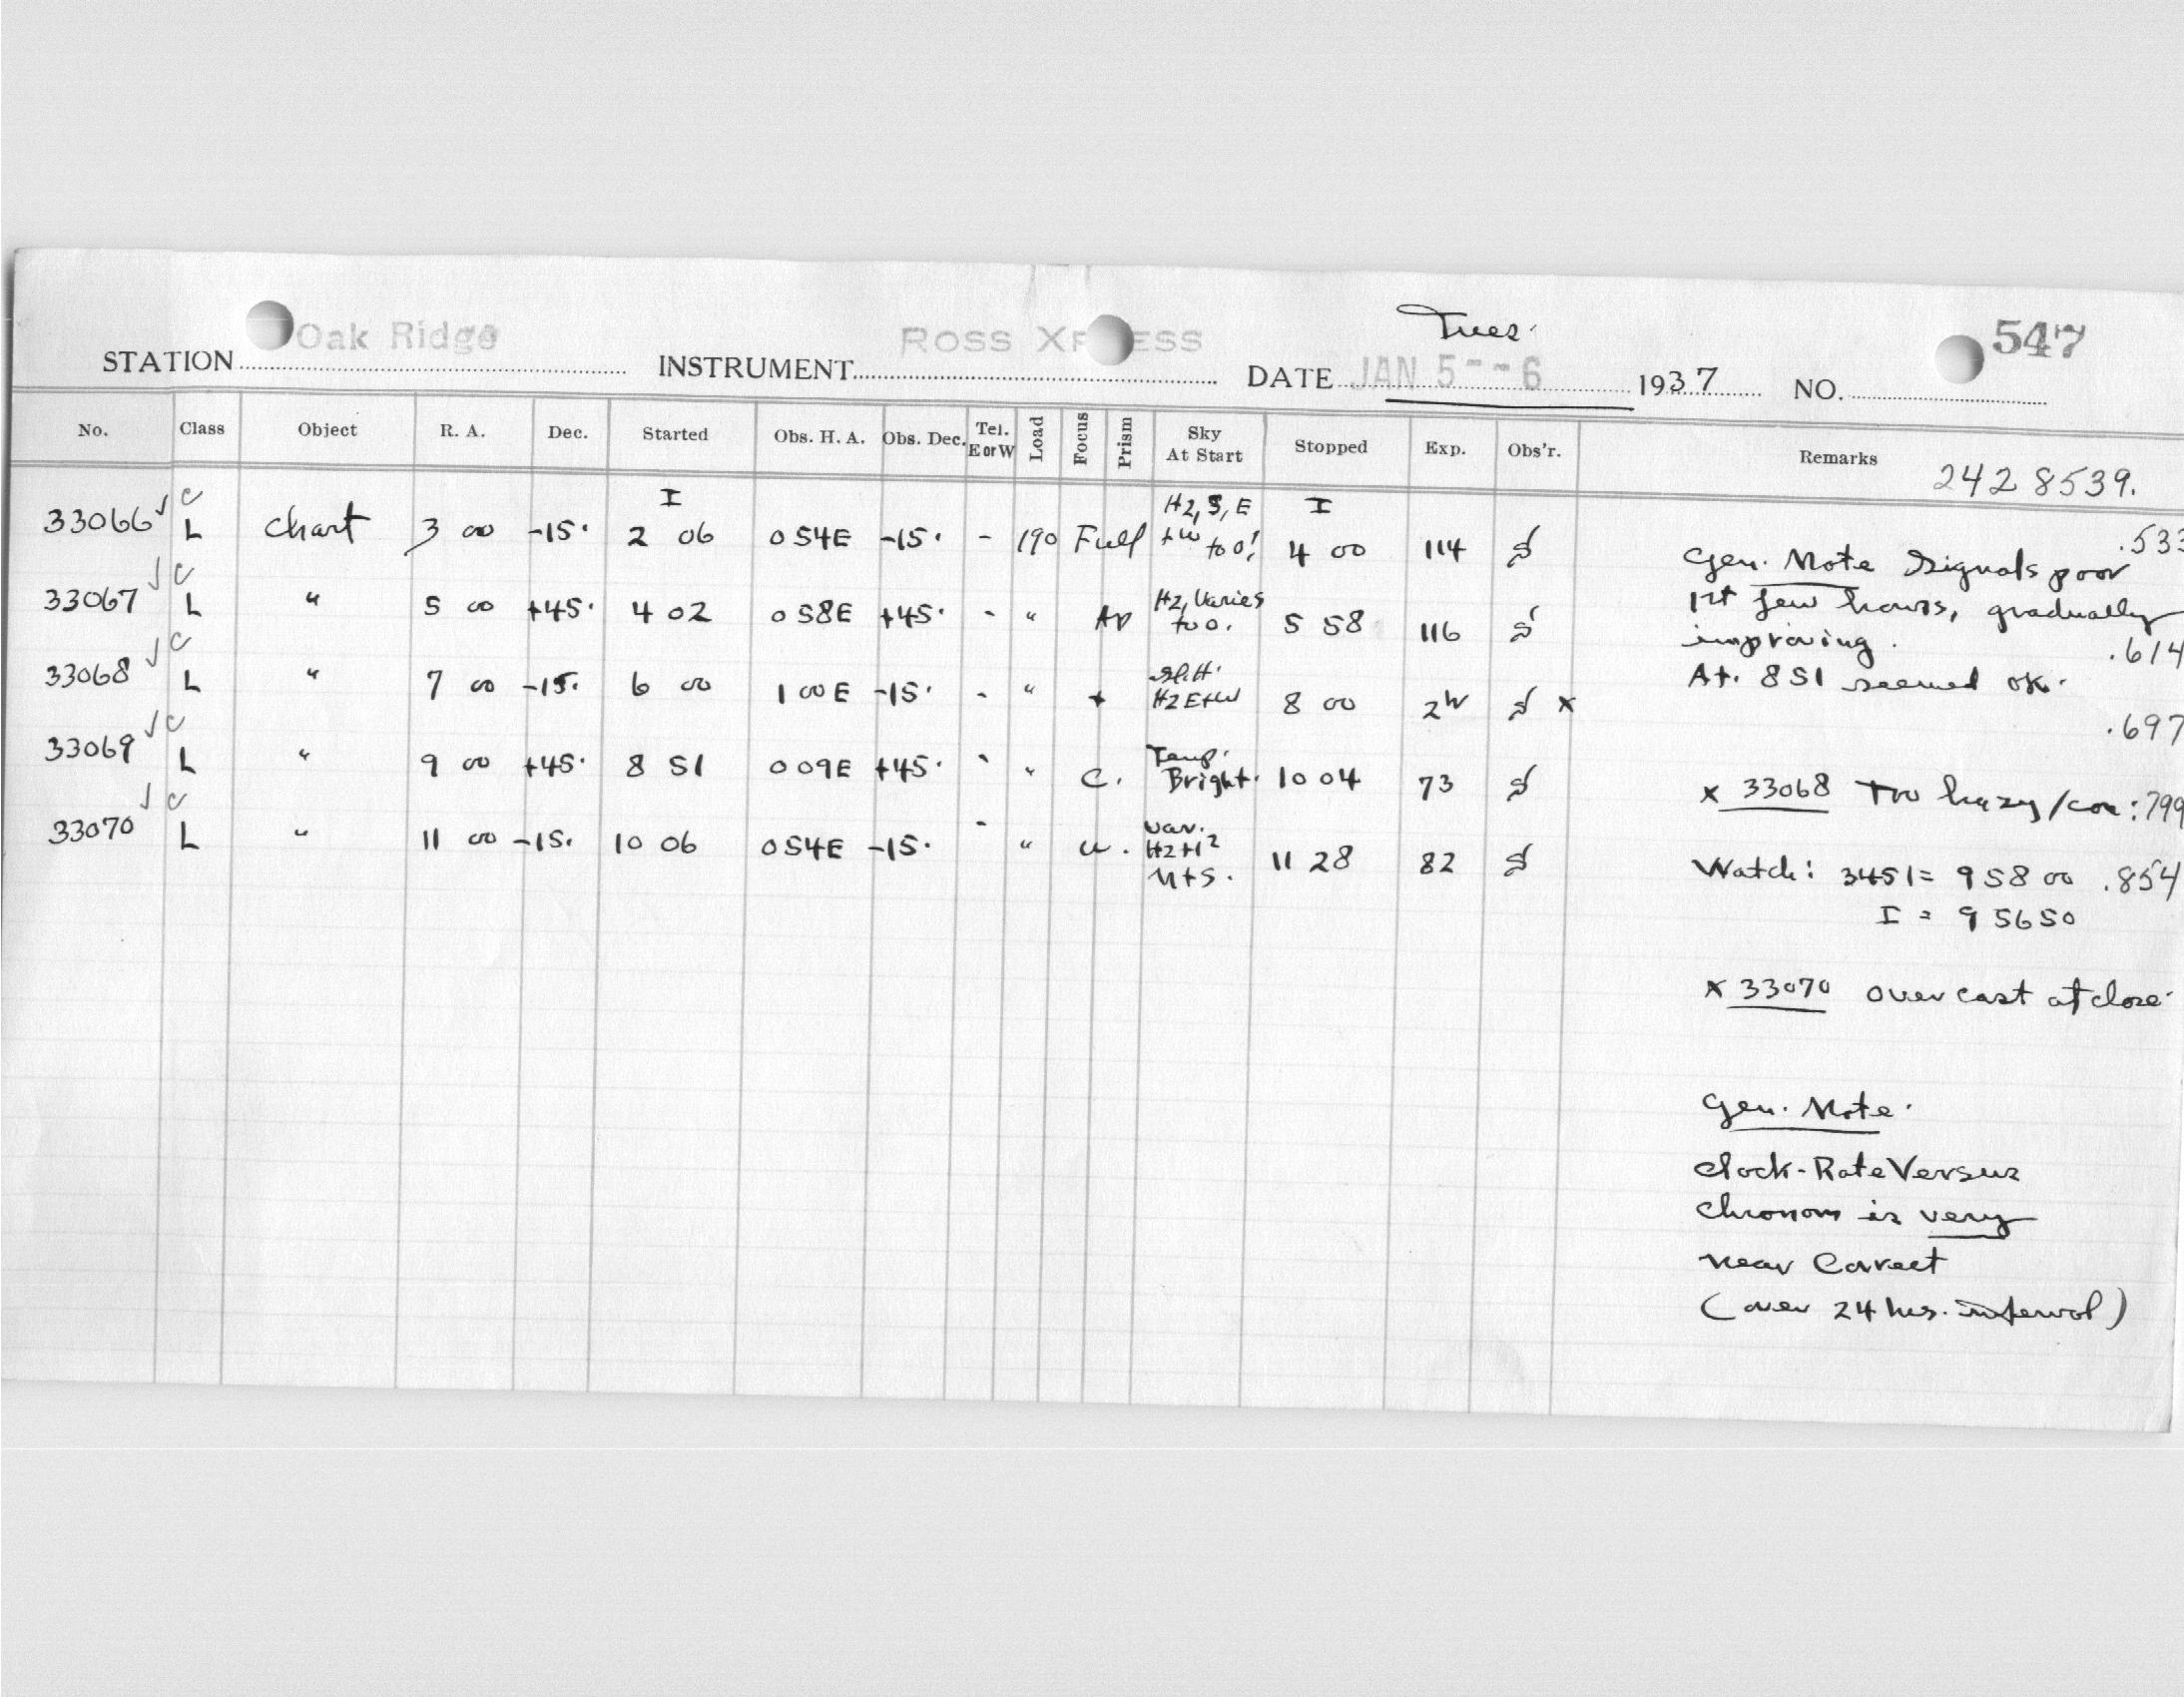 Tues.
STATION Oak Ridge INSTRUMENT ROSS XPRESS DATE JAN 5--6 1937 NO. 547
No. Class Object R. A. Dec. Started Obs. H. A. Obs. Dec. Tel. E or W Load Focus Prism Sky At Start Stopped Exp. Obs'r. Remarks 242 8539.
33066 ✓ C L Chart 3 00 -15. I 2 06 0 54E -15. - 190 Full Hz, S, E + W to 0! I 4 00 114 .533
33067 ✓ C L " 5 00 +45. 4 02 0 58E +45. - " Hz, Varies to 0. 5 58 116 .614
33068 ✓ C L " 7 00 -15. 6 00 1 00E -15. - " Hz E+W 8 00 2h x .697
33069 ✓ C L " 9 00 +45. 8 51 0 09E +45. - " C. Temp. Bright. 10 04 73 .799
33070 ✓ C L " 11 00 -15. 10 06 0 54E -15. - " Var. N+S. 11 28 82 .854
Gen. Note Signals poor
1st few hours, gradually
improving.
At. 8 51 seemed OK.
x 33068 Too hazy
Watch: 3451 = 9 58 00
I = 9 56 50
x 33070 Overcast at close.
Gen. Note.
Clock-Rate Versus
Chronom is very
near Correct
(over 24 hrs. interval)